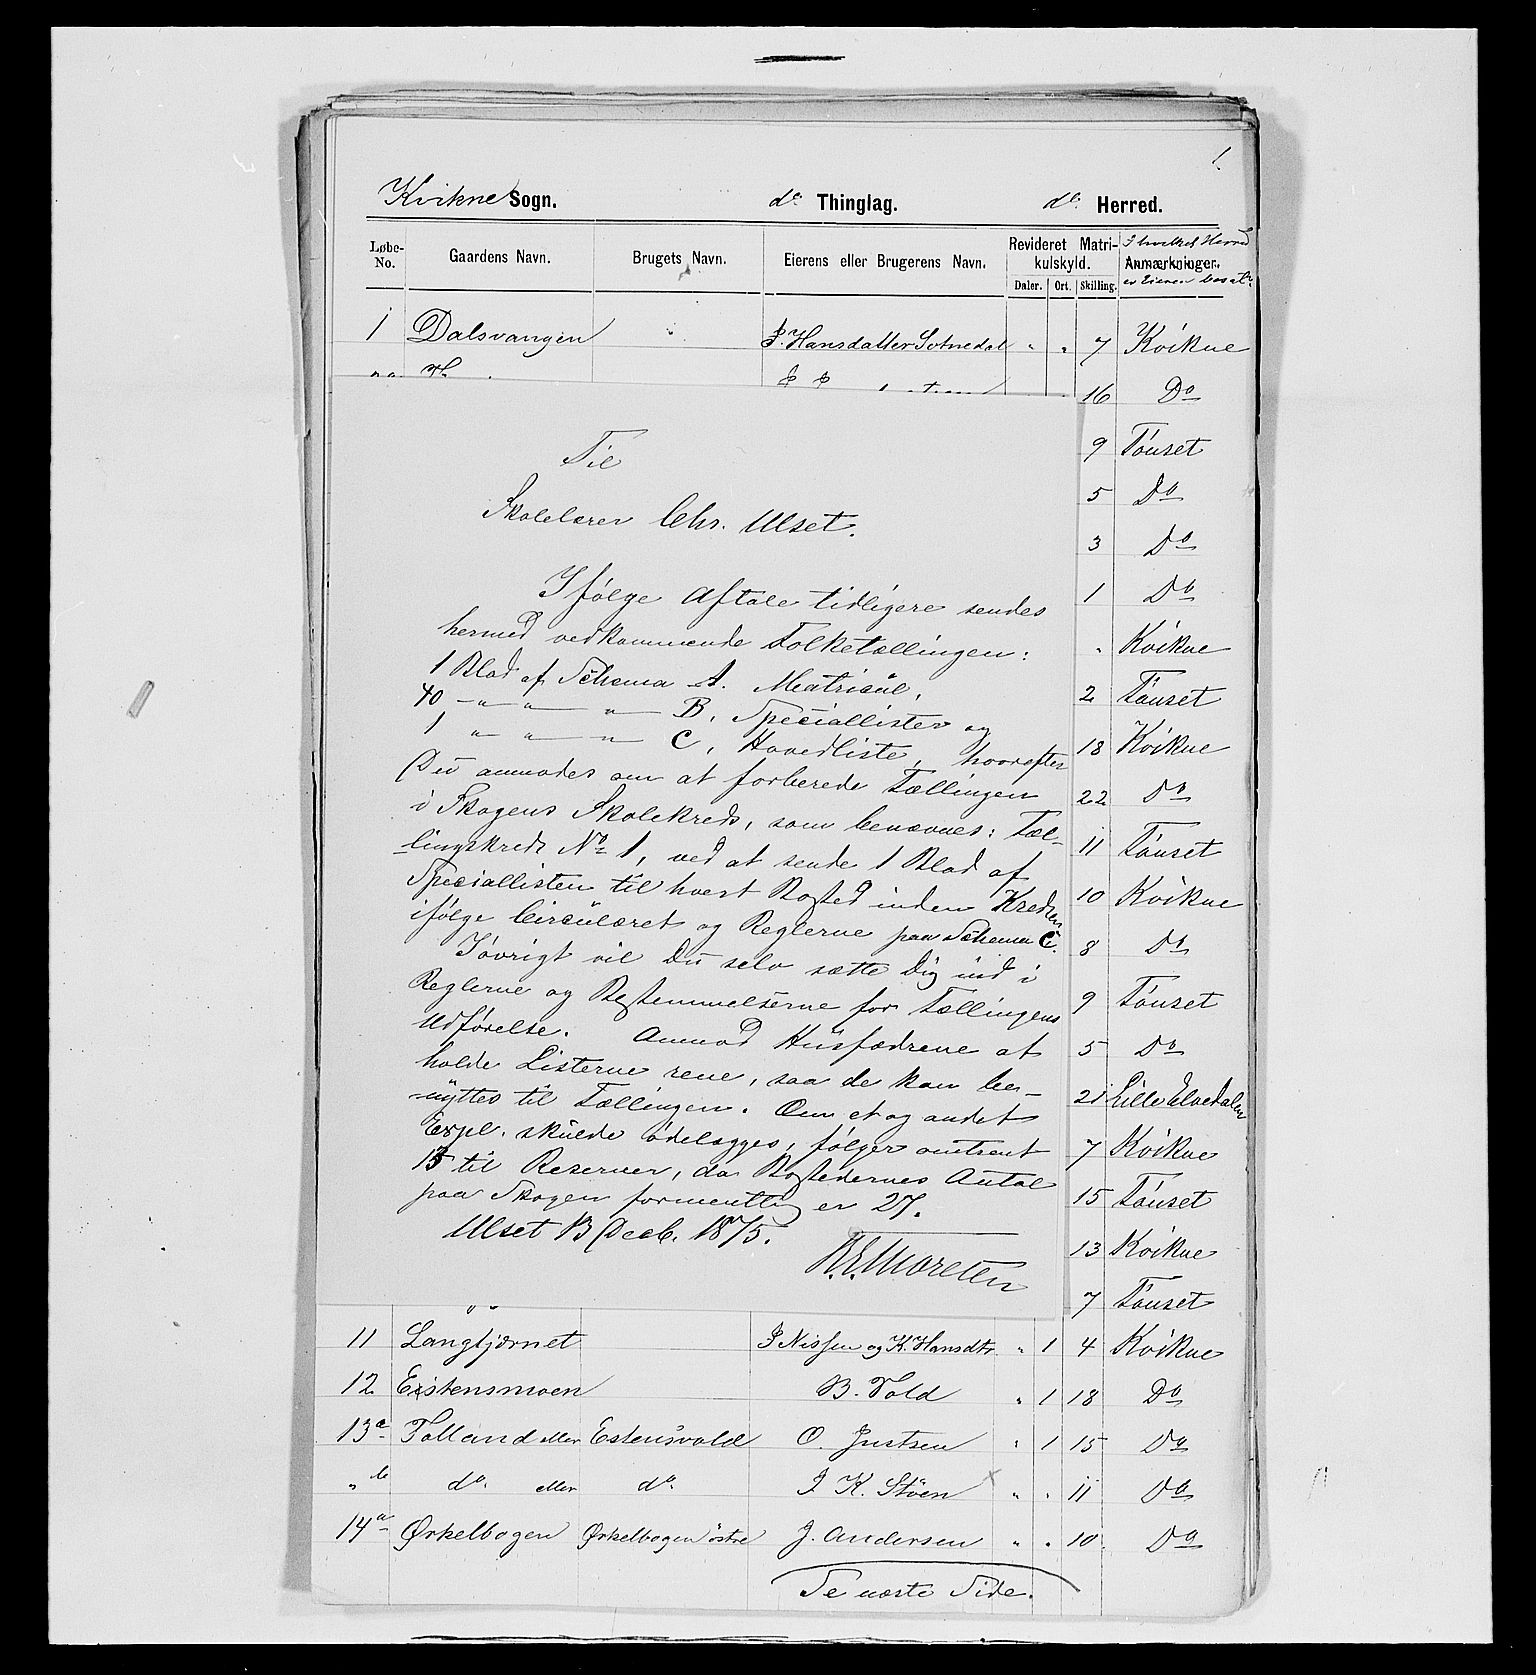 1.
Kvikne Sogn. do. Thinglag. do. Herred.
Løbe-No. Gaardens Navn. Brugets Navn. Eierens eller Brugerens Navn. Revideret Matrikulskyld. Daler. Ort. Skilling. I hvilket Herred Anmærkninger. er Eieren bosat.
1 Dalsvangen " P. Hansdatter Sotnedal " " 7 Kvikne
16 Do
9 Tönset
5 Do
3 Do
1 Do
" Kvikne
2 Tönset
18 Kvikne
22 Do
11 Tönset
10 Kvikne
8 Do
9 Tönset
5 Do
21 Lille Elvedalen
7 Kvikne
15 Tönset
13 Kvikne
7 Tönset
Til
Skolelærer Chr. Ulset.
Ifölge Aftale tidligere sendes
hermed vedkommende Folketællingen:
1 Blad af Schema A. Matricul,
40 —"— " —"— B, Speciallister og
1 " " —"— C, Hovedliste, hvorefter
Du anmodes om at forberede Tællingen
i Skogens Skolekreds, som benævnes: Tæl-
lingskreds No 1, ved at sende 1 Blad af
Speciallisten til hvert Bosted inden Kredsen
ifölge Circulæret og Reglerne paa Schema C.
Iövrigt vil Du selv sætte Dig ind i
Reglerne og Bestemmelserne for Tællingens
Udförelse. Anmod Husfædrene at
holde Listerne rene, saa de kan be-
nyttes til Tællingen. Om et og andet
Expl. skulde ödelægges, fölger omtrent
13 til Reserver, da Bostedernes Antal
paa Skogen formentlig er 27.
Ulset 13 Decb. 1875.
11 Langtjærnet P Nissen og K. Hansdtr. " 1 4 Kvikne
12 Estensmoen B. Vold " 1 18 Do
13a Tolland eller Estensvold O. Justsen " 1 15 Do
" b do. eller do. I K. Stöen " " 11 Do
14a Ørkelbogen Ørkelbogen östre J. Andersen " " 10 Do
Se næste Side.